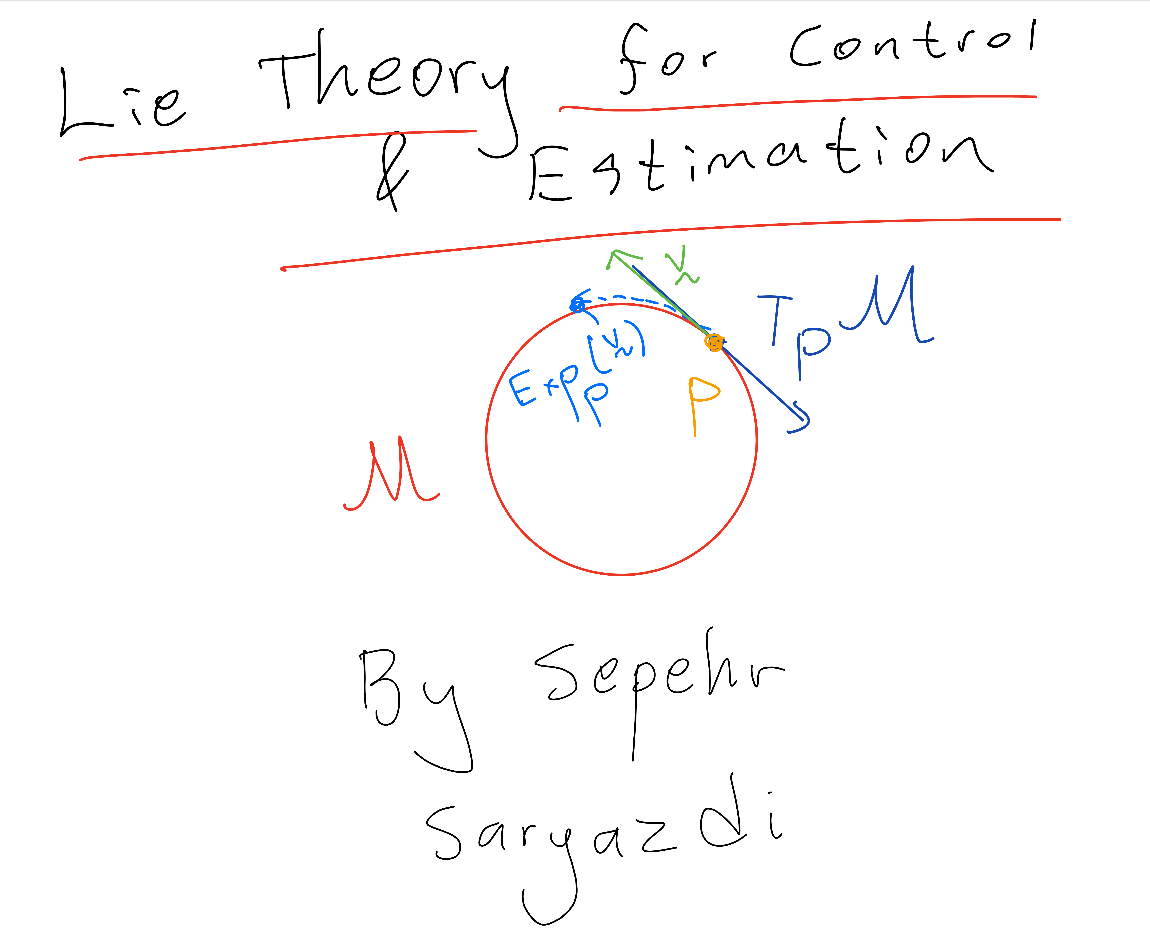 Lie Theory for Control
& Estimation
v
T_p M
Exp_p(v)
p
M
By Sepehr
Saryazdi